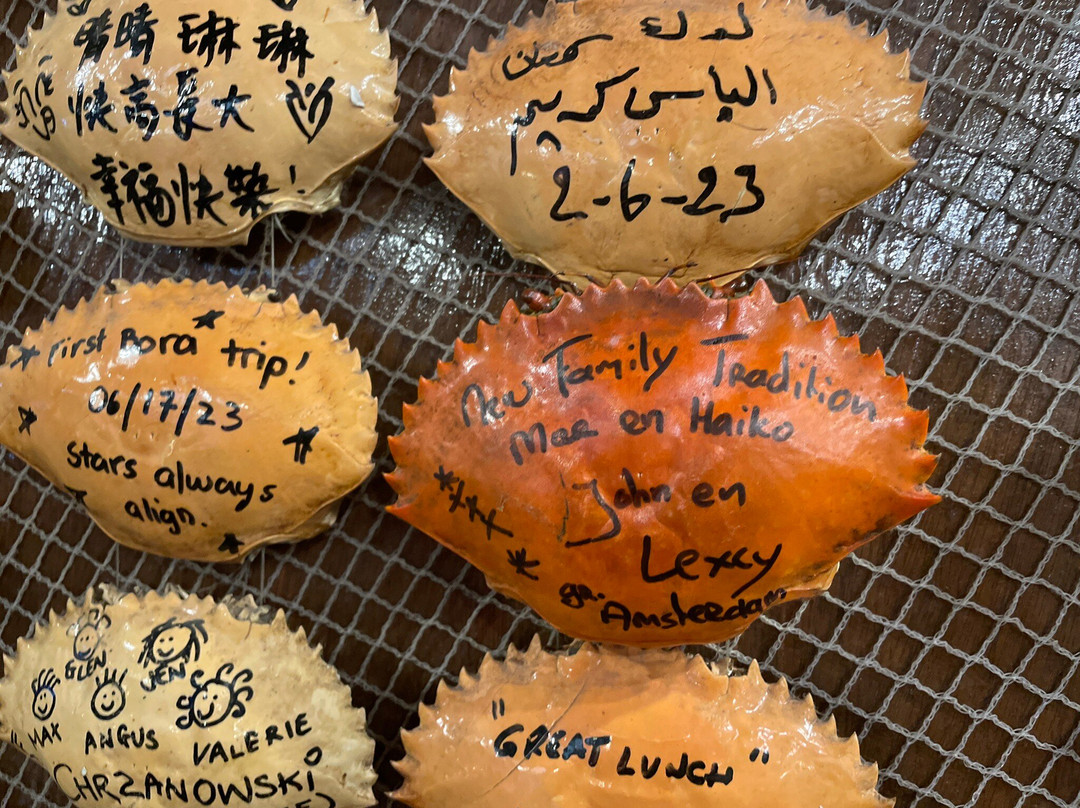 晴晴 琳琳
快高長大
幸福快樂!
الياس كريم
2-6-23
First Bora trip!
06/17/23
Stars always
align.
New Family Tradition
Mae en Haiko
John en
Lexcy
gr. Amsterdam
GLEN
JEN
MAX
ANGUS
VALERIE
CHRZANOWSKI
"GREAT LUNCH"